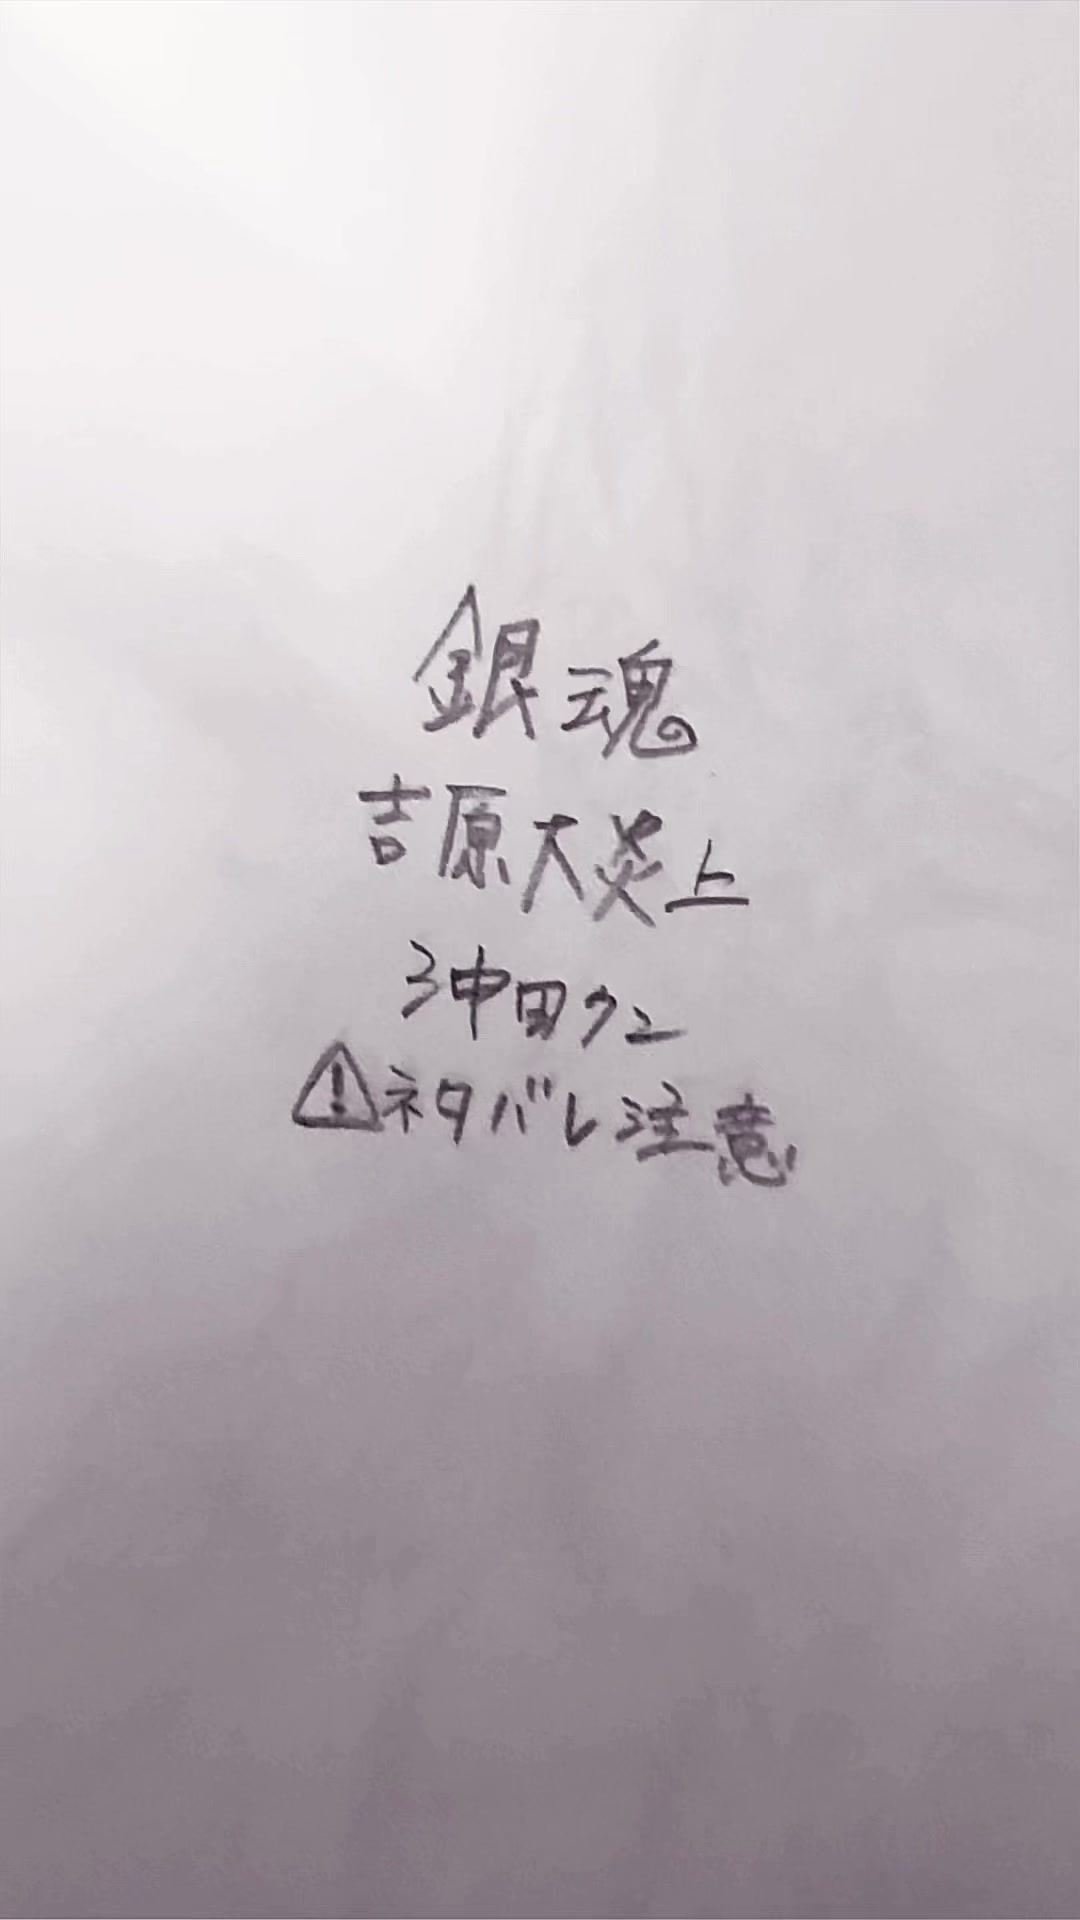 銀魂
吉原大炎上
沖田クン
⚠ネタバレ注意